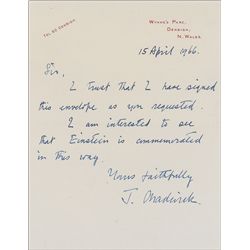 TEL 50 DENBIGH
WYNNE'S PARC,
DENBIGH,
N. WALES.
15 April 1966.
Sir,
I trust that I have signed
this envelope as you requested.
I am interested to see
that Einstein is commemorated
in this way.
Yours faithfully
J. Chadwick